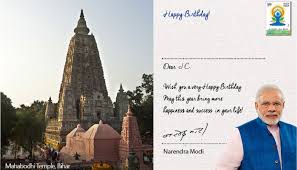 Happy Birthday!
Dear J.C.
Wish you a very Happy Birthday
May this year bring more
happiness and success in your life!
Narendra Modi
Mahabodhi Temple, Bihar